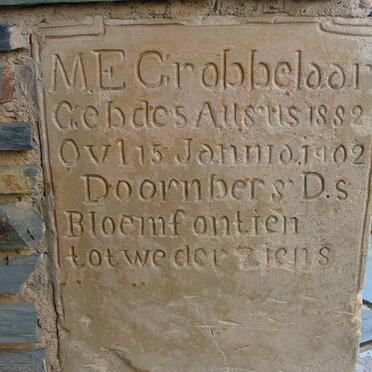 M E Grobbelaar
Geb de 5 Augus 1882
Ovl 15 Jannia. 1902
Doornberg D.s
Bloemfontien
tot weder ziens